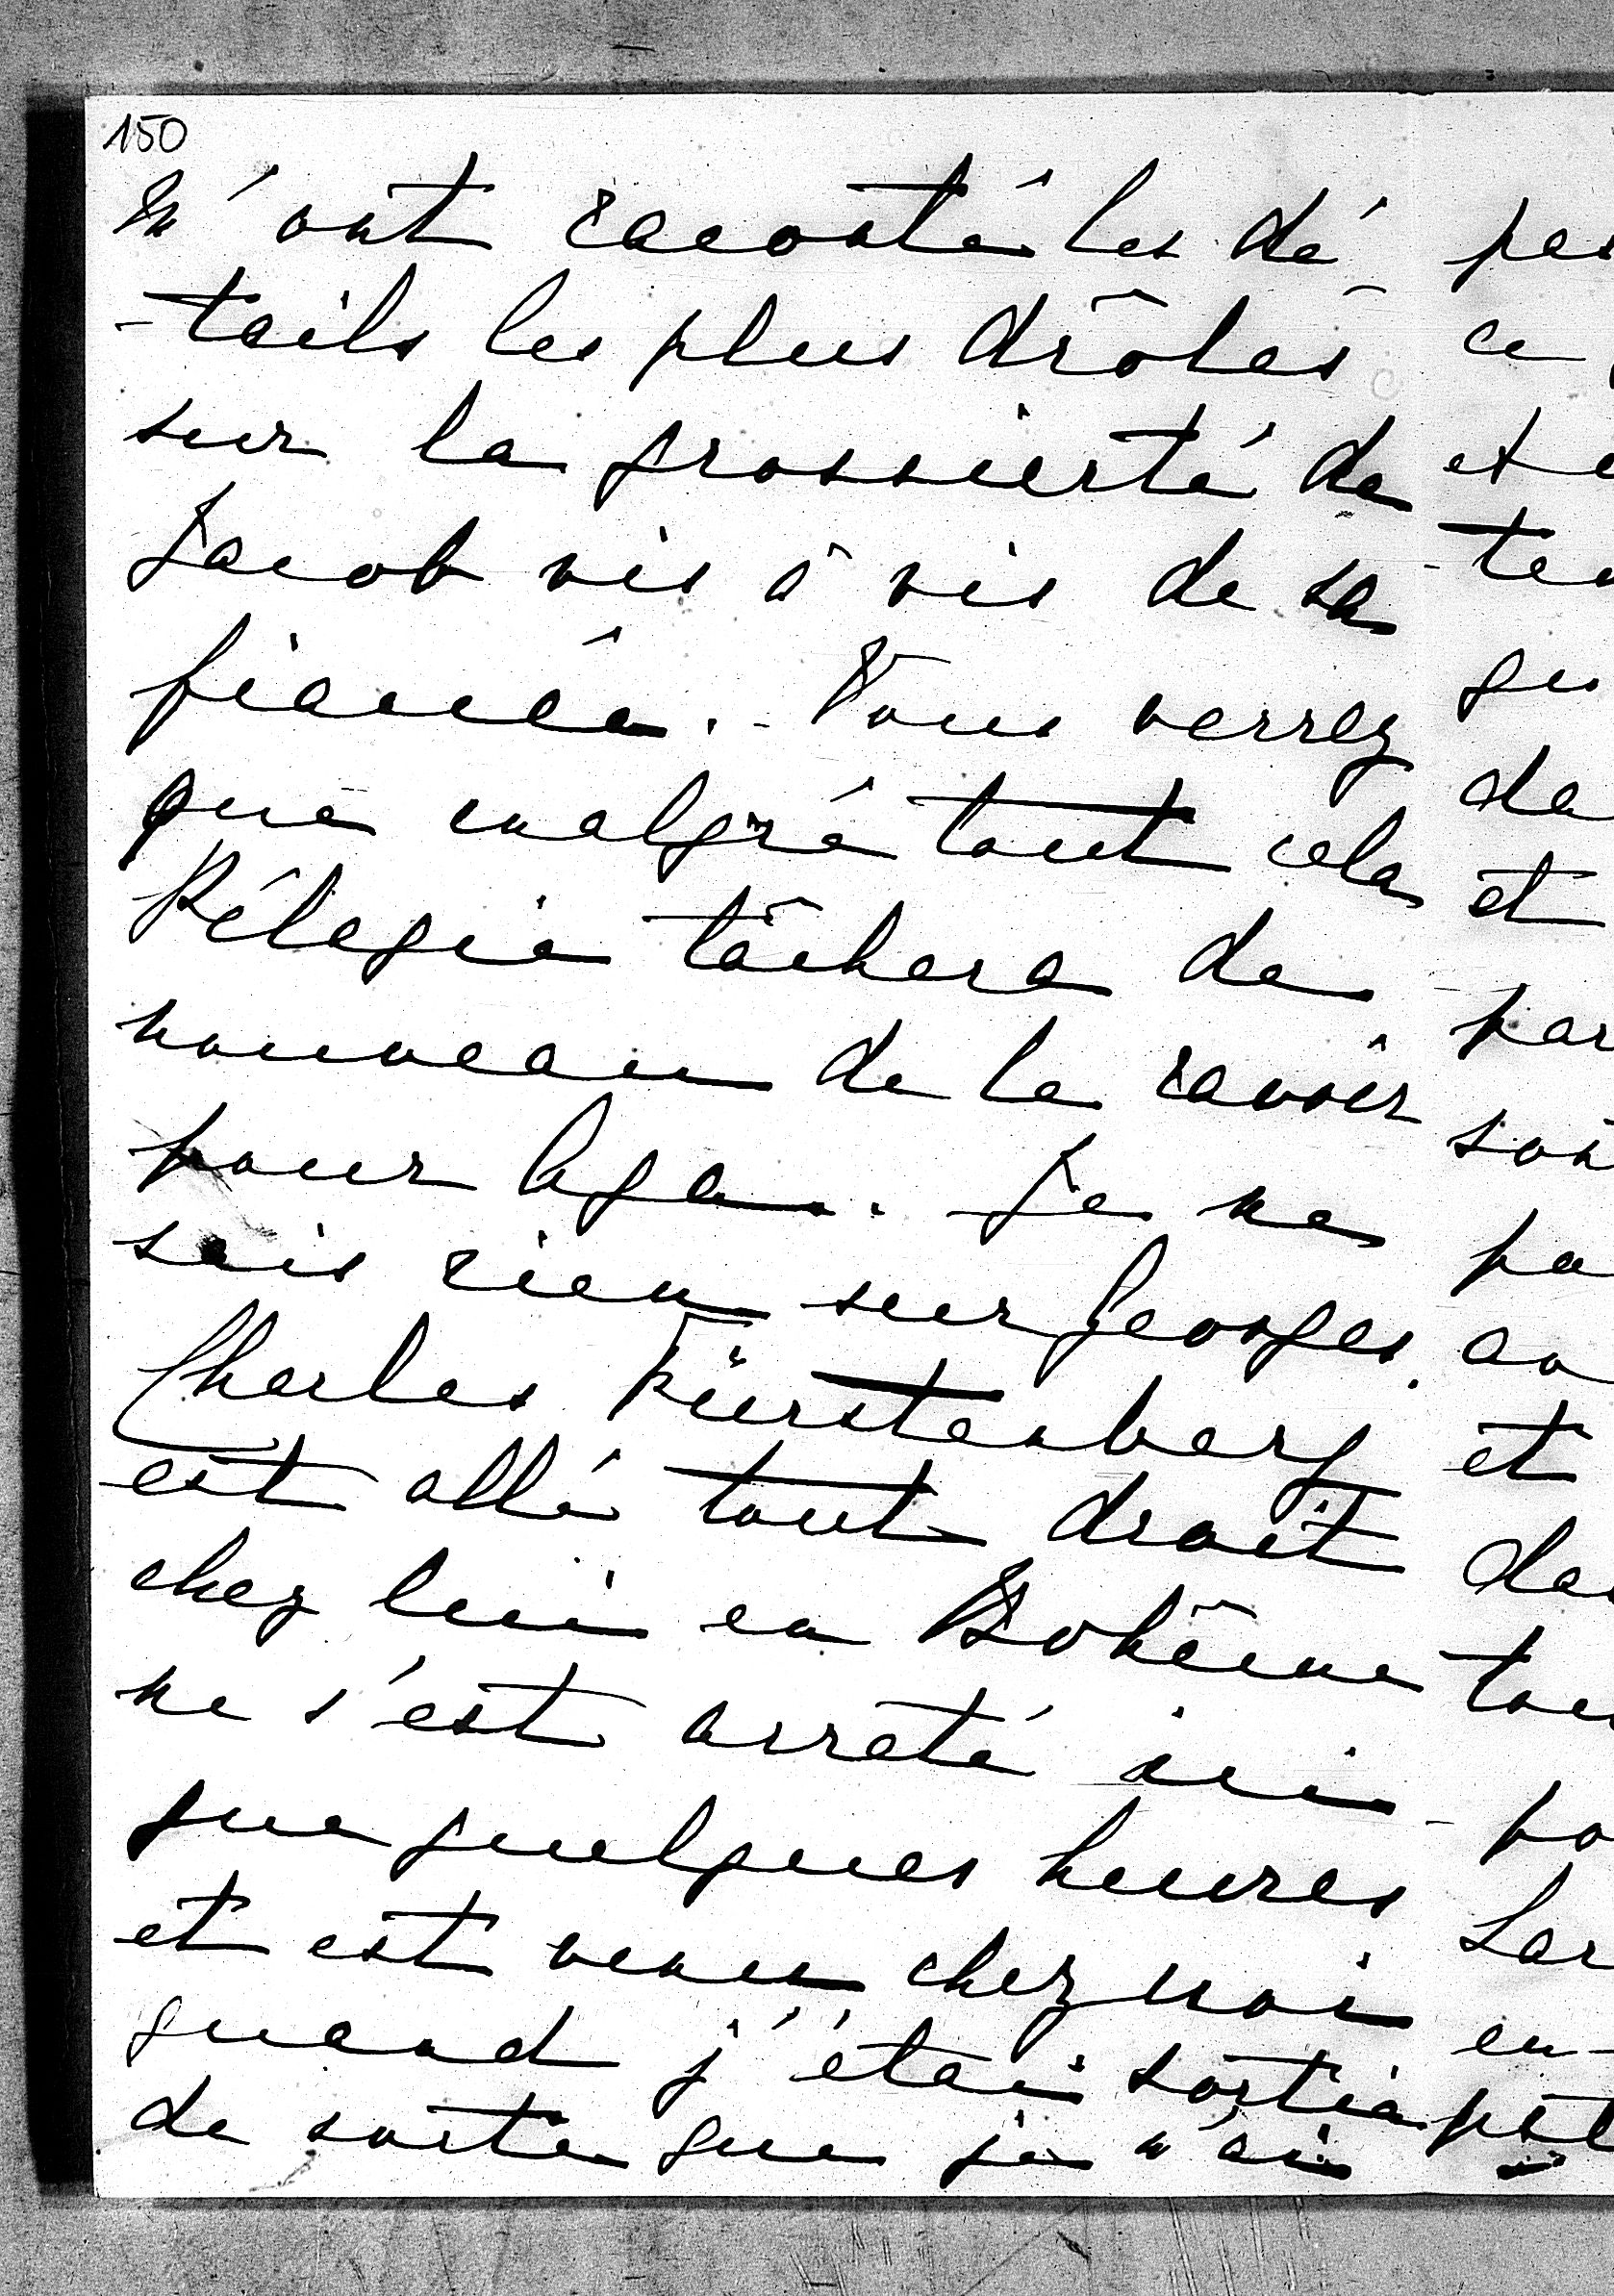 150
m'ont raconté les dé
-tails les plus drôles
sur la grossierté de
Jacob vis à vis de sa
fiancée. - Vous verrez
que malgré tout cela
Pélagie tâchera de
nouveau de le ravoir
pour Je ne
sais rien sur Georges.
Charles Fürstenberg
est allé tout droit
chez lui en Bohême
ne s'est arreté ici
que quelques heures
et est venu chez moi
quand j'étais sortie
de sorte que je n'ai
ce
et
da
et
et